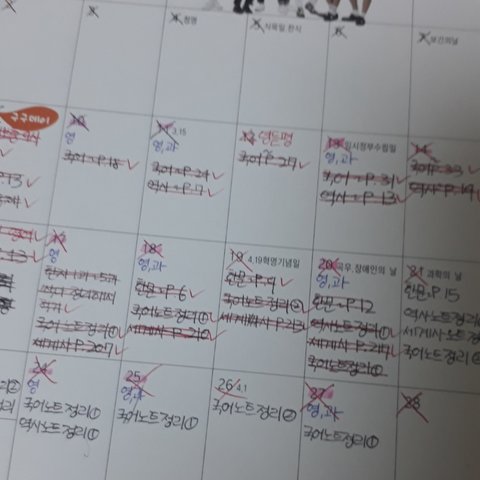 4 청명
5 식목일,한식
6
보건의날
구구데이
10
영
국어 P.18
11 3.15
영,과
국어 P.24
역사 P.7
12 영듣평
국어 P.27
13 임시정부수립일
영,과
국어 P.31
역사 P.13
14
국어 33
역사 P.19
P.13
17
영
국어노트정리①
세계사 P.207
18
영,과
한문 P.6
국어노트정리①
세계사 P.210
19 4.19혁명기념일
한문 P.9
국어노트정리②
세계사 P.213
20 곡우,장애인의 날
영,과
한문 P.12
역사노트정리①
세계사 P.217
국어노트정리①
21 과학의 날
한문 P.15
역사노트정리
세계사노트정리
국어노트정리
24
영
국어노트정리①
역사노트정리①
25
영,과
국어노트정리①
26 4.1
국어노트정리②
27
영,과
국어노트정리①
28